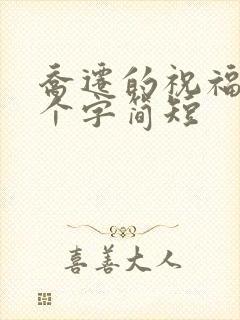 乔迁的祝福
个字简短
喜善大人